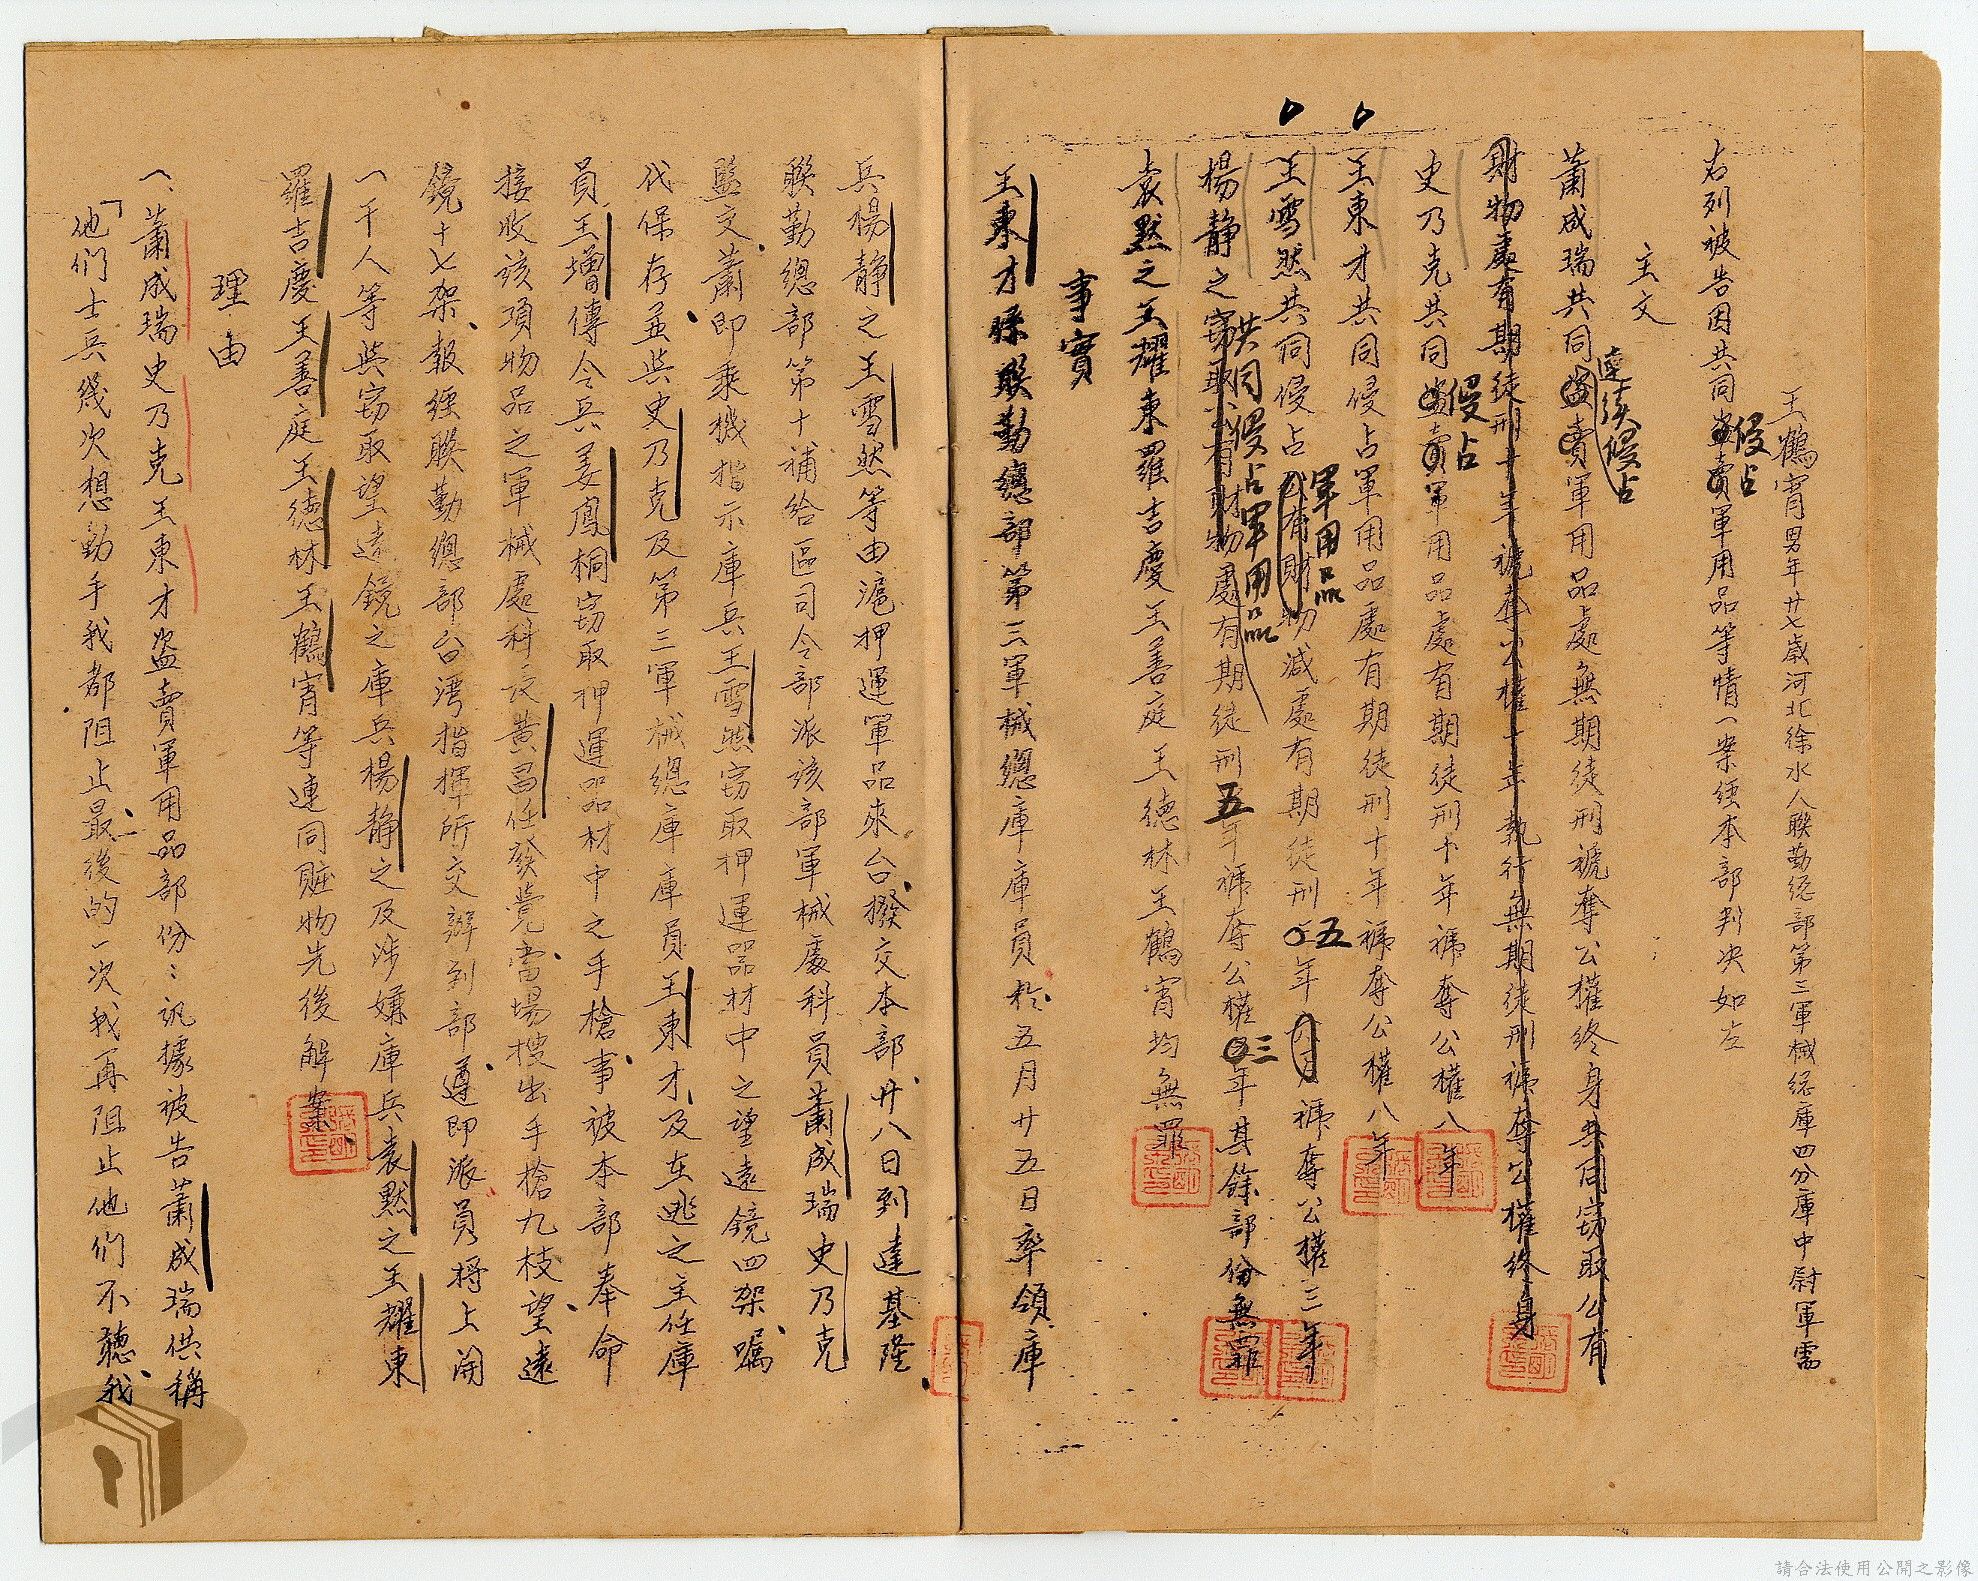 王鶴宵男年廿七歲河北徐水人聯勤總部第三軍械總庫四分庫中尉軍需
右列被告因共同盜賣侵占軍用品等情一案經本部判決如左
主文
蕭成瑞共同盜賣連續侵占軍用品處無期徒刑褫奪公權終身共同竊取公有
財物處有期徒刑十年褫奪公權十年執行無期徒刑褫奪公權終身
史乃克共同盜賣侵占軍用品處有期徒刑十年褫奪公權八年
王東才共同侵占軍用品處有期徒刑十年褫奪公權八年
王雪然共同侵占公有財物軍用品減處有期徒刑五年六月褫奪公權三年
楊靜之竊取公有財物共同侵占軍用品處有期徒刑五年褫奪公權三年其餘部份無罪
袁默之王耀東羅吉慶王善庭王德林王鶴宵均無罪
事實
王東才係聯勤總部第三軍械總庫庫員於五月廿五日率領庫
兵楊靜之王雪然等由滬押運軍品來台撥交本部廿八日到達基隆
聯勤總部第十補給區司令部派該部軍械處科員蕭成瑞史乃克
監交蕭即乘機指示庫兵王雪然竊取押運器材中之望遠鏡四架囑
代保存並與史乃克及第三軍械總庫庫員王東才及在逃之主任庫
員王增傳令兵姜鳳桐竊取押運品材中之手槍事被本部奉命
接收該項物品之軍械處科長黃昌任發覺當場搜出手槍九枝望遠
鏡十七架報經聯勤總部台灣指揮所交辦到部遵即派員將上開
一干人等與竊取望遠鏡之庫兵楊靜之及涉嫌庫兵袁默之王耀東
羅吉慶王善庭王德林王鶴宵等連同贓物先後解案
理由
一、蕭成瑞史乃克王東才盜賣軍用品部份：訊據被告蕭成瑞供稱
「他們士兵幾次想動手我都阻止最後的一次我再阻止他們不聽我
請合法使用公開之影像